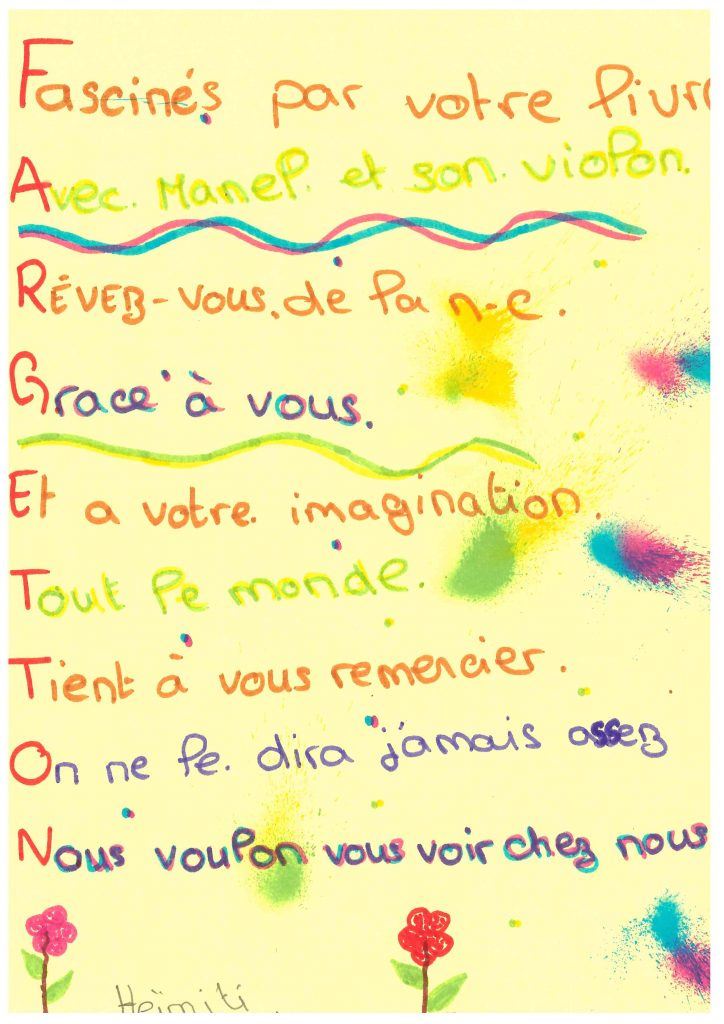 Fascinés par votre livre
Avec. Manel. et son. violon.
RÉVEZ-vous.de la n-c.
Grace à vous.
Et a votre. imagination.
Tout le monde.
Tient à vous remercier.
On ne le. dira jamais assez
Nous voulon vous voir chez nous
Heïmiti